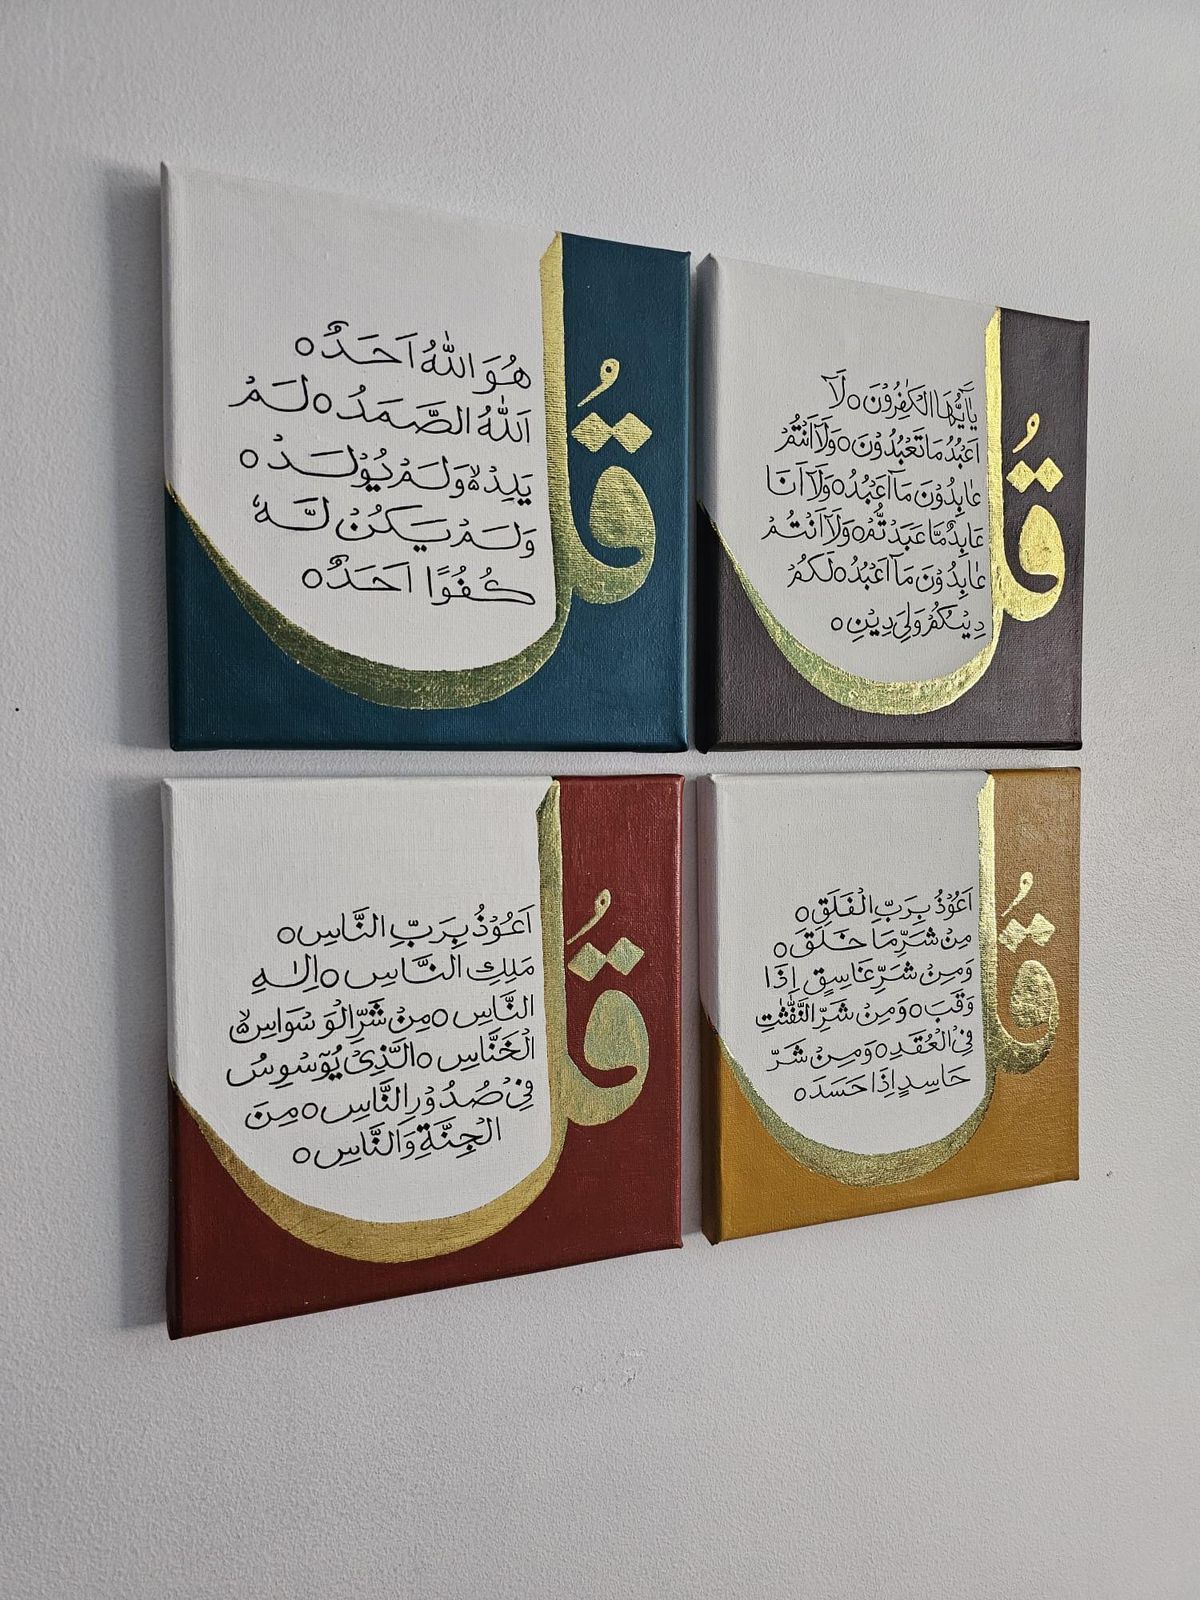 قُلْ
هُوَ اللّٰهُ اَحَدٌ ○
اَللّٰهُ الصَّمَدُ ○ لَمْ
يَلِدْ ۙ وَلَمْ يُوْلَدْ ○
وَلَمْ يَكُنْ لَّهٗ
كُفُوًا اَحَدٌ ○
قُلْ
يٰٓاَيُّهَا الْكٰفِرُوْنَ ○ لَآ
اَعْبُدُ مَا تَعْبُدُوْنَ ○ وَلَآ اَنْتُمْ
عٰبِدُوْنَ مَآ اَعْبُدُ ○ وَلَآ اَنَا
عَابِدٌ مَّا عَبَدْتُّمْ ○ وَلَآ اَنْتُمْ
عٰبِدُوْنَ مَآ اَعْبُدُ ○ لَكُمْ
دِيْنُكُمْ وَلِيَ دِيْنِ ○
قُلْ
اَعُوْذُ بِرَبِّ النَّاسِ ○
مَلِكِ النَّاسِ ○ اِلٰهِ
النَّاسِ ○ مِنْ شَرِّ الْوَسْوَاسِ ۙ
الْخَنَّاسِ ○ الَّذِيْ يُوَسْوِسُ
فِيْ صُدُوْرِ النَّاسِ ○ مِنَ
الْجِنَّةِ وَالنَّاسِ ○
قُلْ
اَعُوْذُ بِرَبِّ الْفَلَقِ ○
مِنْ شَرِّ مَا خَلَقَ ○
وَمِنْ شَرِّ غَاسِقٍ اِذَا
وَقَبَ ○ وَمِنْ شَرِّ النَّفّٰثٰتِ
فِي الْعُقَدِ ○ وَمِنْ شَرِّ
حَاسِدٍ اِذَا حَسَدَ ○